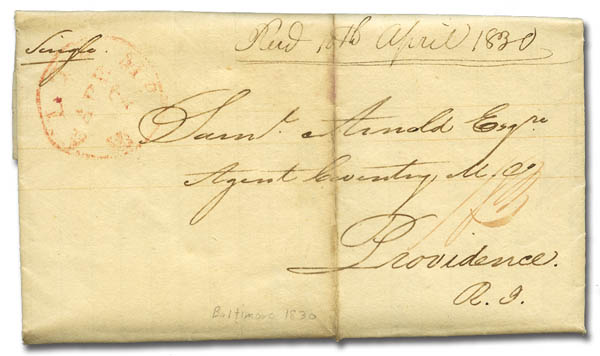 Single.
Recd 10th April 1830
Saml. Arnold Esqre
Agent Coventry M. Co
Providence.
R. I.
Baltimore 1830